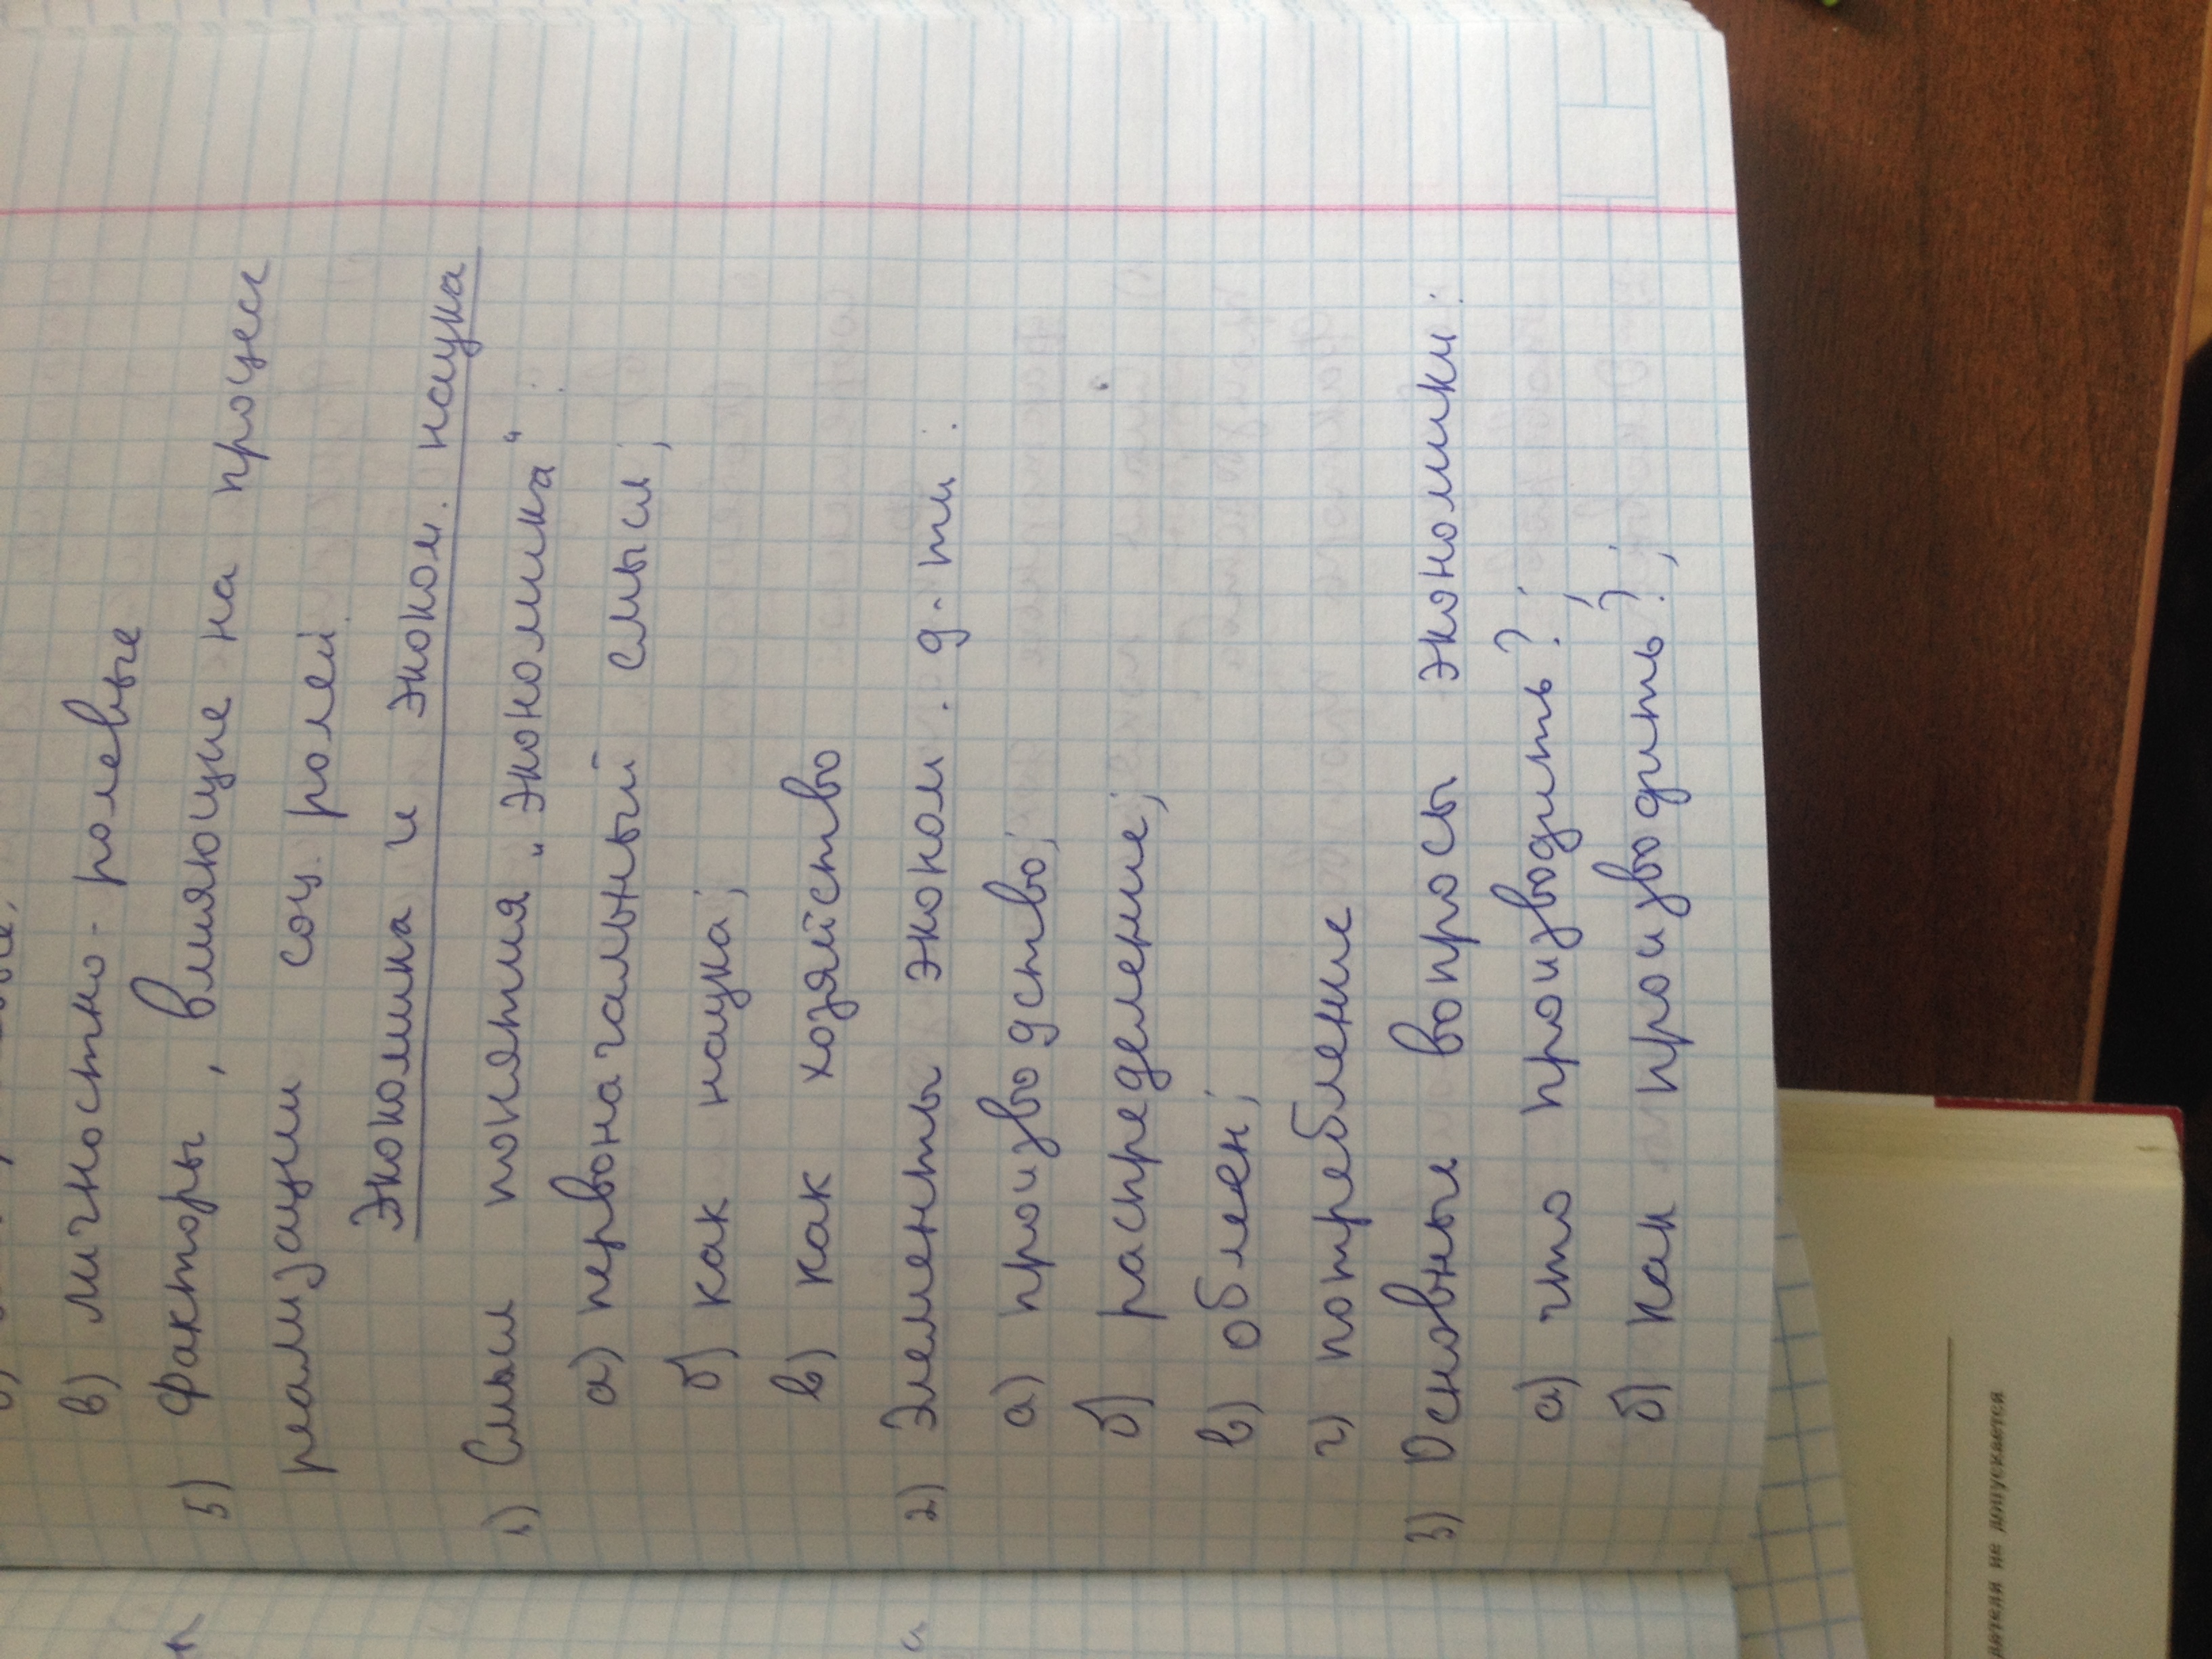 в) личностно-ролевые
5) Факторы, влияющие на процесс
реализации соц. ролей.
Экономика и эконом. наука
1) Смысл понятия „экономика“:
а) первоначальный смысл;
б) как наука;
в) как хозяйство
2) Элементы эконом. д-ти:
а) производство;
б) распределение;
в) обмен;
г) потребление
3) Основные вопросы экономики:
а) что производить?;
б) как производить?;
дателя не допускается